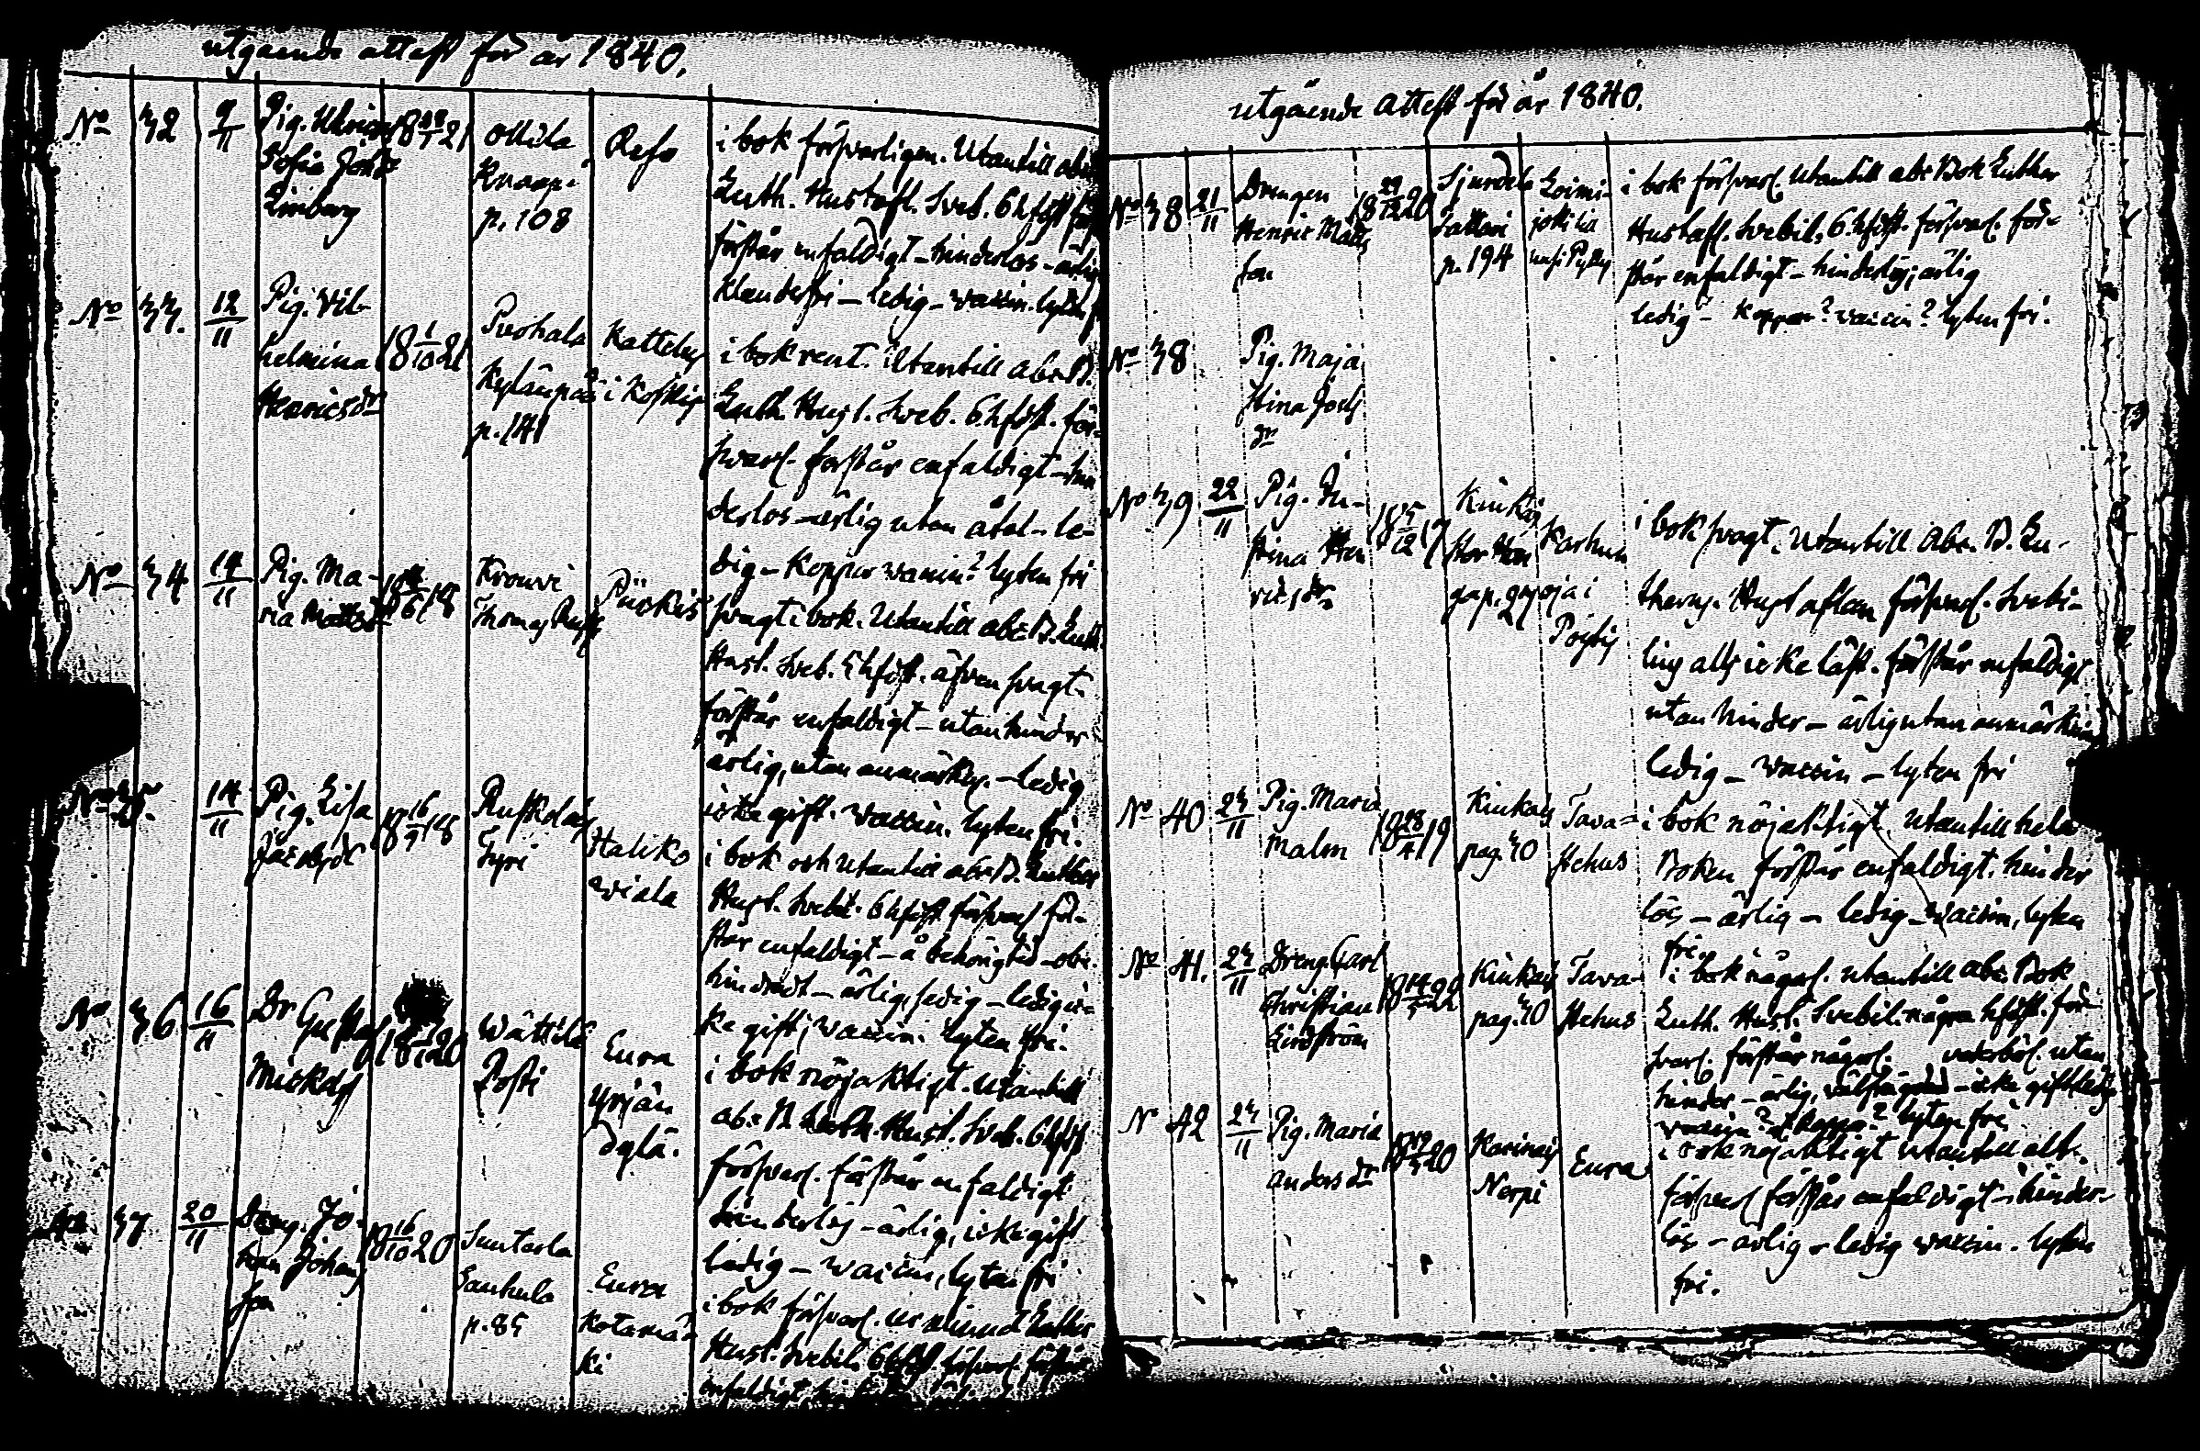 utgående attest för år 1840.
No 32 9/11 Pig. Ulrica Sofia Linberg 18 21 Ottila Knaapi p. 108 Refs
i bok försvarligen. Utantill abc
Luth. Hustafl. Sveb. 6 hfdst
förstår enfaldigt - hinderlös - ärlig
klanderfri - ledig - waccin. lyten
No 33. 12/11 Pig. Vilhelmina Henricsdr 18 1/10 21 Kylänpää p. 141 Kattelus i Koskis
i bok rent. Utantill abc B.
Luth. Hust. Sveb. 6 hfdst. för-
svarl. förstår enfaldigt - hin
derlös - ärlig utan åtal - le-
dig - Koppor waccin? lyten fri
No 34 14/11 Pig. Maria Mattsdr 18 18 Krouvi Thomas
svagt i bok. Utantill abc B. Luth.
Hust. Sveb. 5 hfdst. äfven svagt.
förstår enfaldigt - utan hinder
ärlig, utan anmärkn. - ledig
icke gift. waccin. lyten fri.
No 35. 14/11 Pig. Lisa 18 16/9 18 Ruskola Halikko wiala
i bok och utantill abc B. Luther
Hust. Svebil. 6 hfdst försvarl för-
står enfaldigt - å behörig tid - obe-
hindradt - ärlig, ledig - ledig ic-
ke gift, waccin. lyten fri.
No 36 16/11 Dr Gustaf Mickels 18 20 Wättilä Posti Eura Yrjän
i bok nöjaktigt. Utantill
abc B. Luth. Hust. Sveb. 6 hfdst
försvarl. förstår enfaldigt
hinderlös - ärlig, icke gift
ledig - waccin, lyten fri
No 37 20/11 Dreng. Johan Johansson 18 16/10 20 Suntarla Sauhula p. 85 Eura Kotamäki
i bok försvarl. Luther
Hust. Svebil. 6 hfdst försvarl. förstår
enfaldigt
utgående attest för år 1840.
No 38 21/11 Drengen Henric Mattsson 18 29/12 20 Tattari p. 194 Loimijoki
i bok försvarl. utantill abc Bok Luther
Hustafl. Svebil, 6 hfdst. försvarl. för-
står enfaldigt - hinderlös, ärlig
ledig - koppor? waccin? lyten fri.
No 38 Pig. Maja Stina
No 39 22/11 Pig. Justina Henricsdr 18 15/12 17 Karhunoja i Pöytis
i bok svagt. Utantill Abc. B. Lu-
thers. Hustaflan försvarl. Svebi-
lius alls icke läst. förstår enfaldigt
utan hinder - ärlig utan anmärkning
ledig - waccin - lyten fri
No 40 23/11 Pig. Maria Malm 18 28/4 19 Kinkas pag. 30 Tavastehus
i bok nöjaktigt Utantill hela
Boken förstår enfaldigt. hinder
lös - ärlig - ledig - waccin, lyten
fri.
No 41. 23/11 Dreng. Carl Christian Lindström 18 14/5 22 Kinkas pag. 30 Tavastehus
i bok någorl. utantill abc. Bok
Luth. Hust. Svebil. några hfdst. för-
svarl. förstår någorl. utan
hinder - ärlig, - icke gift ledig
waccin? koppor? lyten fri
N 42 23/11 Pig. Maria Andersdr 18 20 Karinais Nerpi Eura
i bok nöjaktigt utantill allt.
försvarl förstår enfaldigt - hinder-
lös - ärlig - ledig waccin. lyten
fri.